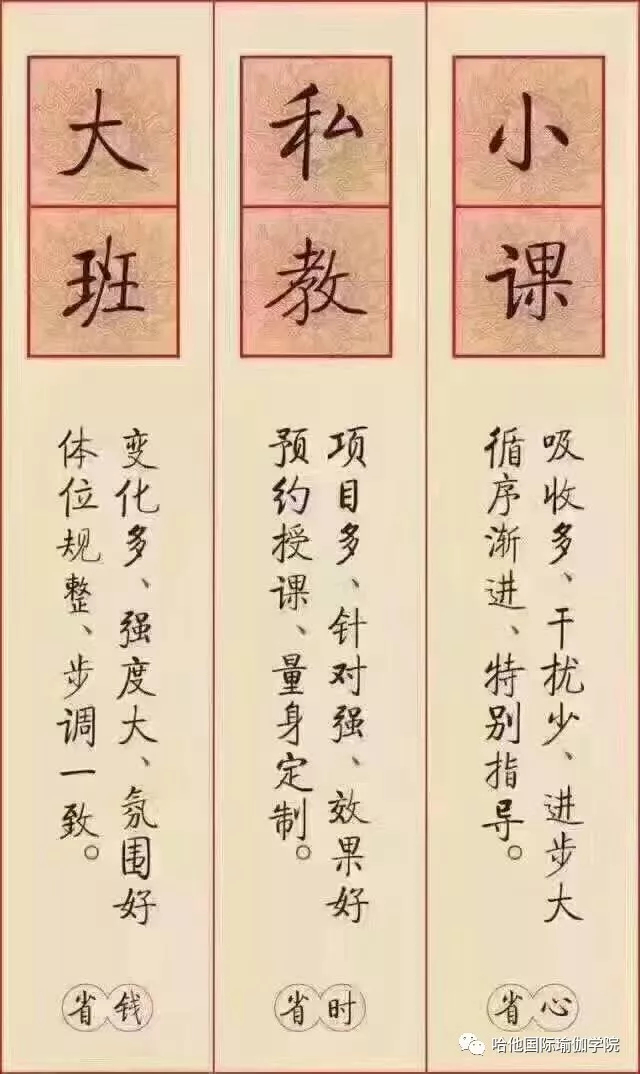 小课
吸收多、干扰少、进步大
循序渐进、特别指导。
省心
私教
项目多、针对强、效果好
预约授课、量身定制。
省时
大班
变化多、强度大、氛围好
体位规整、步调一致。
省钱
哈他国际瑜伽学院